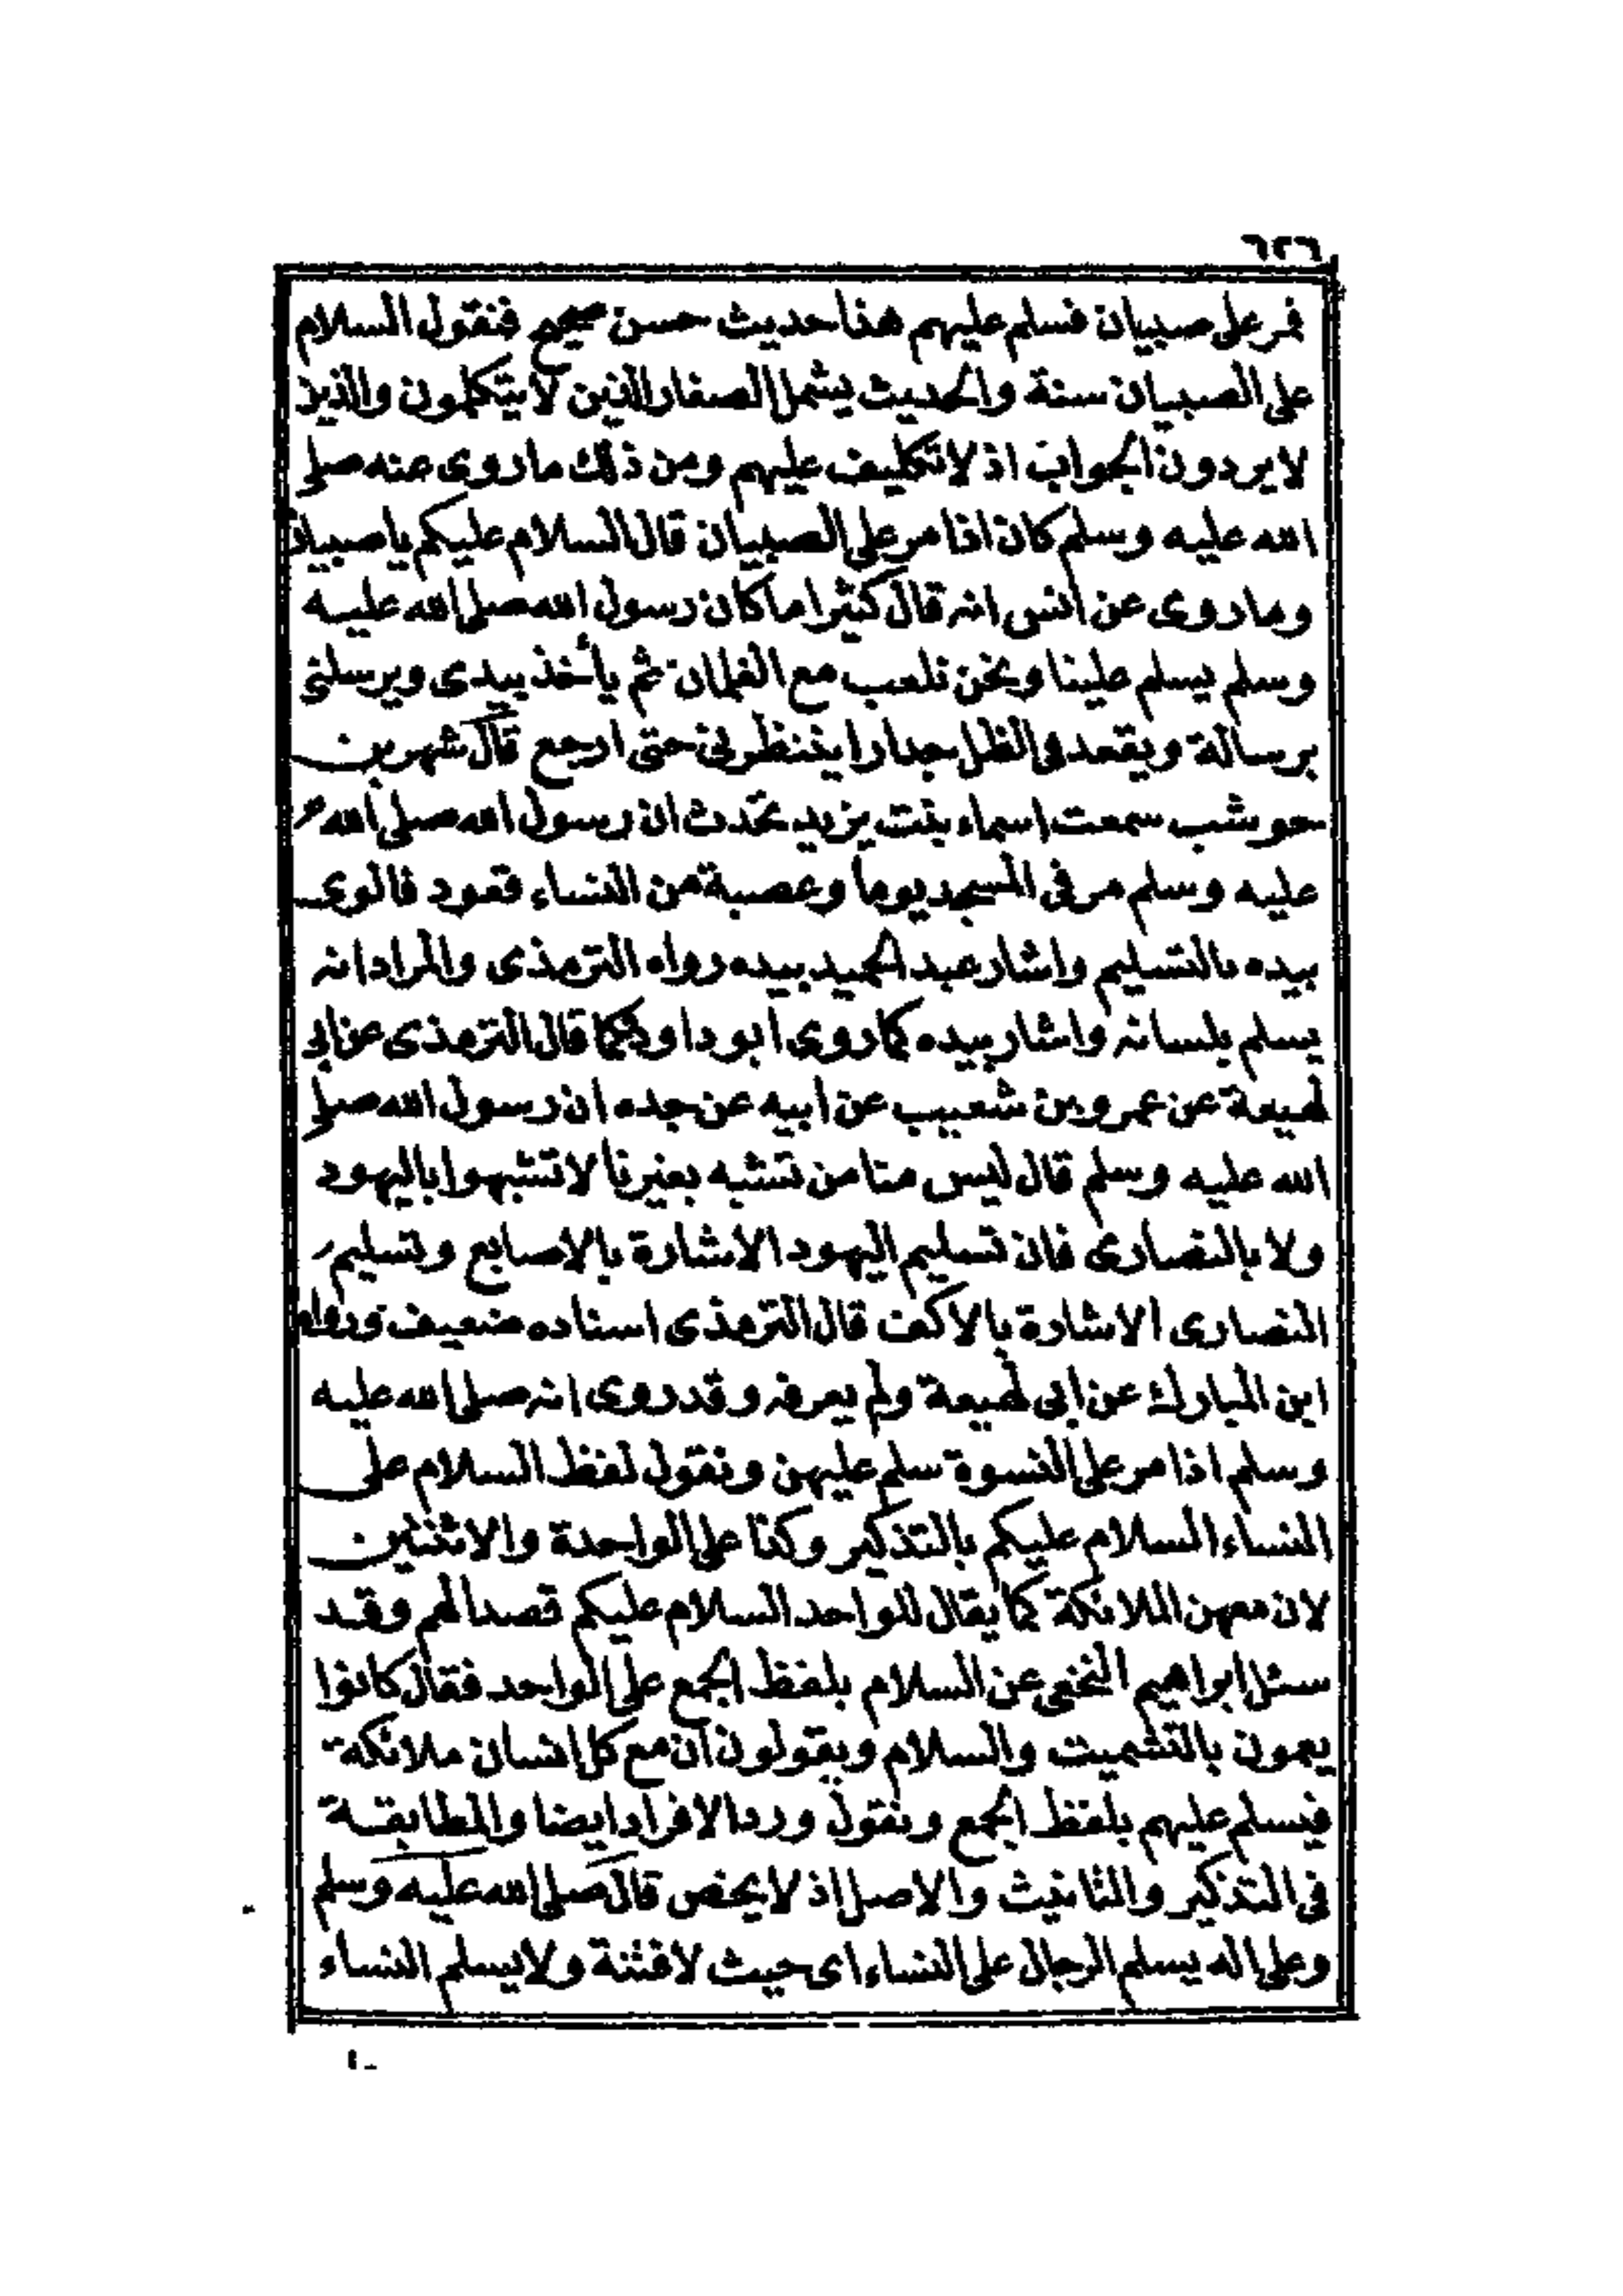 ٦٢٦
فمر على صبيان فسلم عليهم هذا حديث حسن صحيح فنقول السلام
على الصبيان سنة والحديث يشمل الصغار الذين لا يتكلمون والذين
لا يردون الجواب اذ لا تكليف عليهم ومن ذلك ما روى عنه صلى
الله عليه وسلم كان اذا مر على الصبيان قال السلام عليكم يا صبيان
وما روى عن انس انه قال كثيرا ما كان رسول الله صلى الله عليه
وسلم يسلم علينا ونحن نلعب مع الغلمان ثم يأخذ بيدى ويرسلنى
برسالة ويقعد فى الظل جدارا ينتظرنى حتى ارجع قال شهر بن
حوشب سمعت اسماء بنت يزيد تحدث ان رسول الله صلى الله
عليه وسلم مر فى المسجد يوما وعصبة من النساء قعود فالوى
بيده بالتسليم واشار عبد الحميد بيده رواه الترمذى والمراد انه
يسلم بلسانه واشار بيده كما روى ابو داود كما قال الترمذى عن ابى
لهيعة عن عمرو بن شعيب عن ابيه عن جده ان رسول الله صلى
الله عليه وسلم قال ليس منا من تشبه بغيرنا لا تتشبهوا باليهود
ولا بالنصارى فان تسليم اليهود الاشارة بالاصابع وتسليم
النصارى الاشارة بالاكف قال الترمذى اسناده ضعيف ورواه
ابن المبارك عن ابى لهيعة ولم يعرفه وقد روى انه صلى الله عليه
وسلم اذا مر على النسوة سلم عليهن ونقول لفظ السلام على
النساء السلام عليكم بالتذكير وكذا على الواحدة والاثنتين
لان معهن الملائكة كما يقال للواحد السلام عليكم قصدا لهم وقد
سئل ابراهيم النخعى عن السلام بلفظ الجمع على الواحد فقال كانوا
يعمون بالتشميت والسلام ويقولون ان مع كل انسان ملائكة
فيسلم عليهم بلفظ الجمع ونقول ورد الافراد ايضا والمطابقة
فى التذكير والتانيث والاصل اذ لا يخص قال صلى الله عليه وسلم
وعلى اله يسلم الرجال على النساء اى حيث لا فتنة ولا يسلم النساء